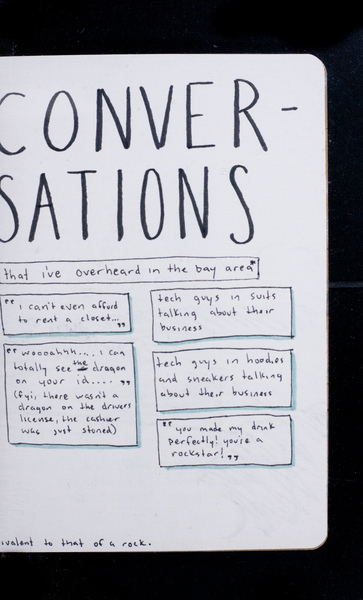 CONVER-
SATIONS
that i've overheard in the bay area*
" i can't even afford
to rent a closet... "
" woooahhh.... i can
totally see the dragon
on your id.... "
(fyi, there wasn't a
dragon on the drivers
license, the cashier
was just stoned)
tech guys in suits
talking about their
business
tech guys in hoodies
and sneakers talking
about their business
" you made my drink
perfectly! you're a
rockstar! "
ivalent to that of a rock.